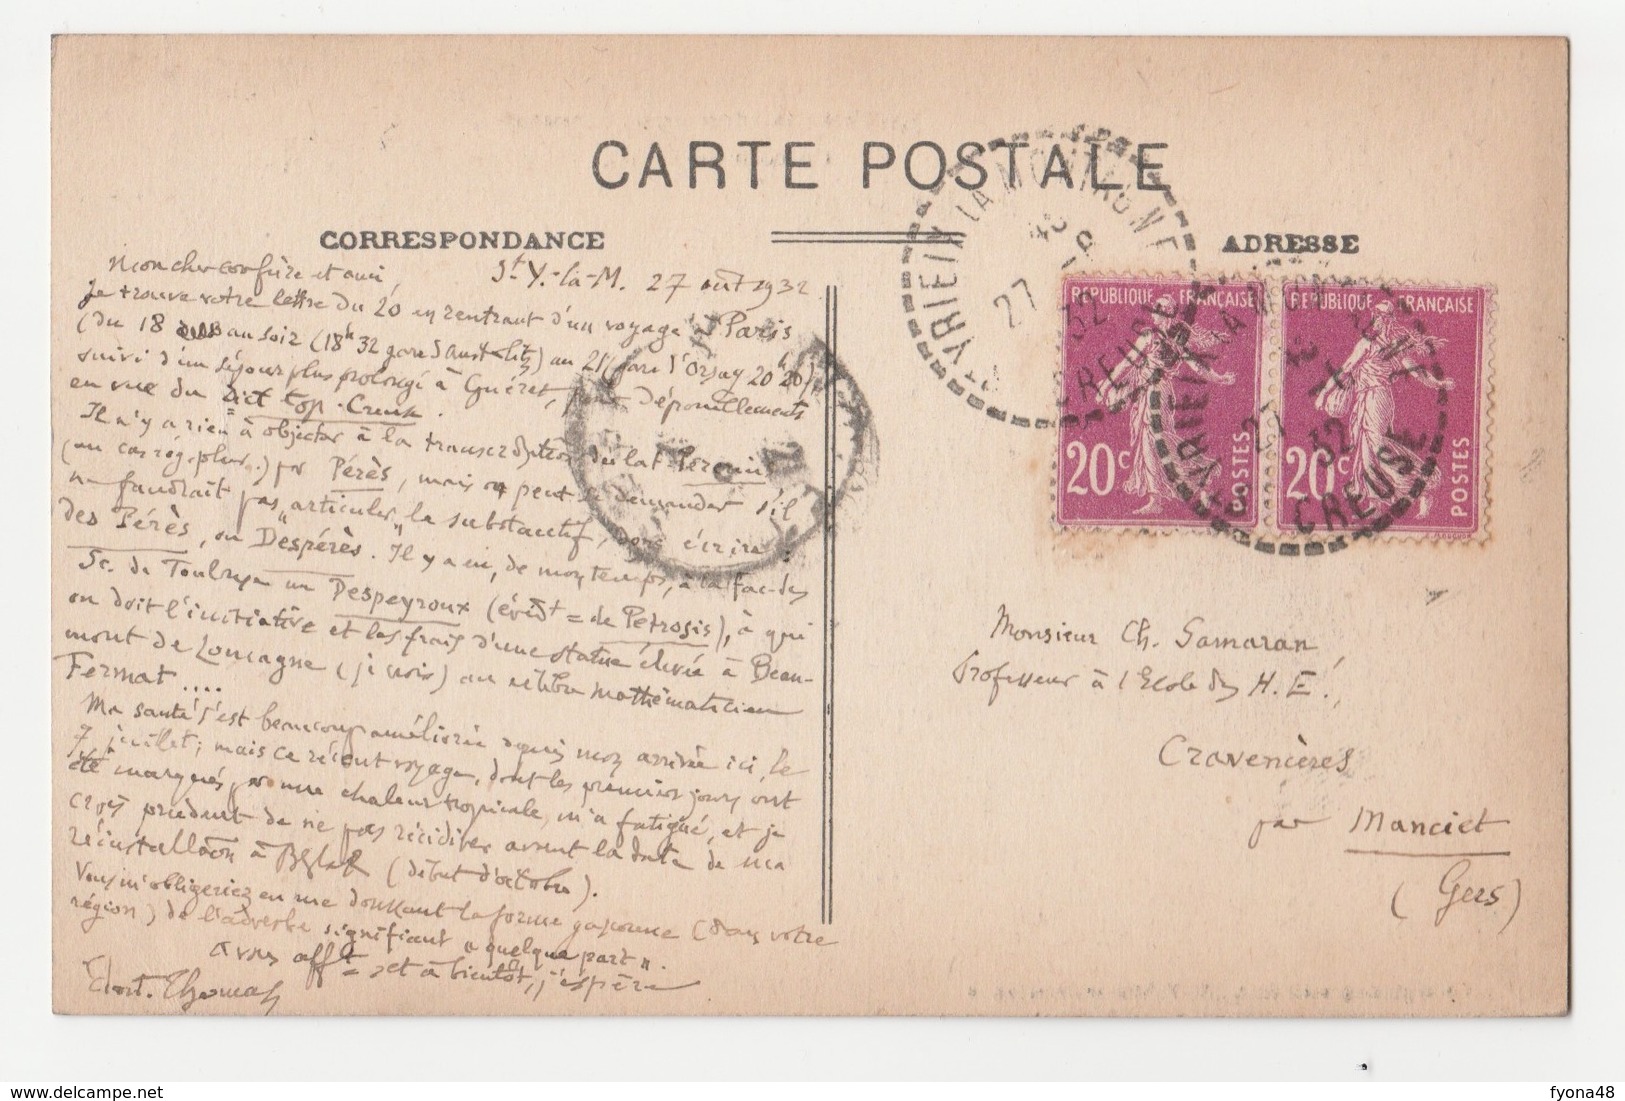 CARTE POSTALE
CORRESPONDANCE
ADRESSE
Mon cher confrère et ami,
St Y.-la-M. 27 août 1932
Je trouve votre lettre du 20 en rentrant d'un voyage à Paris
(du 18 au soir (18h 32 gare d'Austerlitz) au 21 (gare d'Orsay 20h 20),
suivi d'un séjour plus prolongé à Guéret, pour dépouillements
en vue du Dict top. Creuse.
Il n'y a rien à objecter à la transcription du lat.
(au cas rég. plur.) par Pérès, mais on peut se demander s'il
ne faudrait pas "articuler" le substantif, donc écrire :
des Pérès, ou Despérès. Il y a eu, de mon temps, à la fac. des
Sc. de Toulouse un Despeyroux (évidt = de Petrosis), à qui
on doit l'initiative et les frais d'une statue élevée à Beau-
mont de Lomagne (je crois) au célèbre mathématicien
Fermat ....
Ma santé s'est beaucoup améliorée depuis mon arrivée ici, le
7 juillet; mais ce récent voyage, dont les premiers jours ont
été marqués par une chaleur tropicale, m'a fatigué, et je
crois prudent de ne pas récidiver avant la date de ma
réinstallation à (début d'octobre).
Vous m'obligeriez en me donnant la forme gasconne (dans votre
région) de l'adverbe signifiant "quelque part".
A vous afft et à bientôt, j'espère
Ant. Thomas
Monsieur Ch. Samaran,
Professeur à l'Ecole des H. E.,
Cravencères
par Manciet
(Gers)
ST YRIEIX LA MONTAGNE
27 -8
32
CREUSE
REPUBLIQUE FRANÇAISE
20c
POSTES
ST YRIEIX LA MONTAGNE
27 -8
32
CREUSE
REPUBLIQUE FRANÇAISE
20c
POSTES
Delcampe.net
fyona48